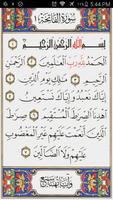 5:44 PM
سُورَةُ الفَاتِحَةِ ١
بِسْمِ ٱللَّهِ ٱلرَّحْمَٰنِ ٱلرَّحِيمِ
ٱلْحَمْدُ لِلَّهِ رَبِّ ٱلْعَٰلَمِينَ
ٱلرَّحْمَٰنِ ٱلرَّحِيمِ مَٰلِكِ يَوْمِ ٱلدِّينِ
إِيَّاكَ نَعْبُدُ وَإِيَّاكَ نَسْتَعِينُ
ٱهْدِنَا ٱلصِّرَٰطَ ٱلْمُسْتَقِيمَ صِرَٰطَ
ٱلَّذِينَ أَنْعَمْتَ عَلَيْهِمْ غَيْرِ ٱلْمَغْضُوبِ
عَلَيْهِمْ وَلَا ٱلضَّآلِّينَ